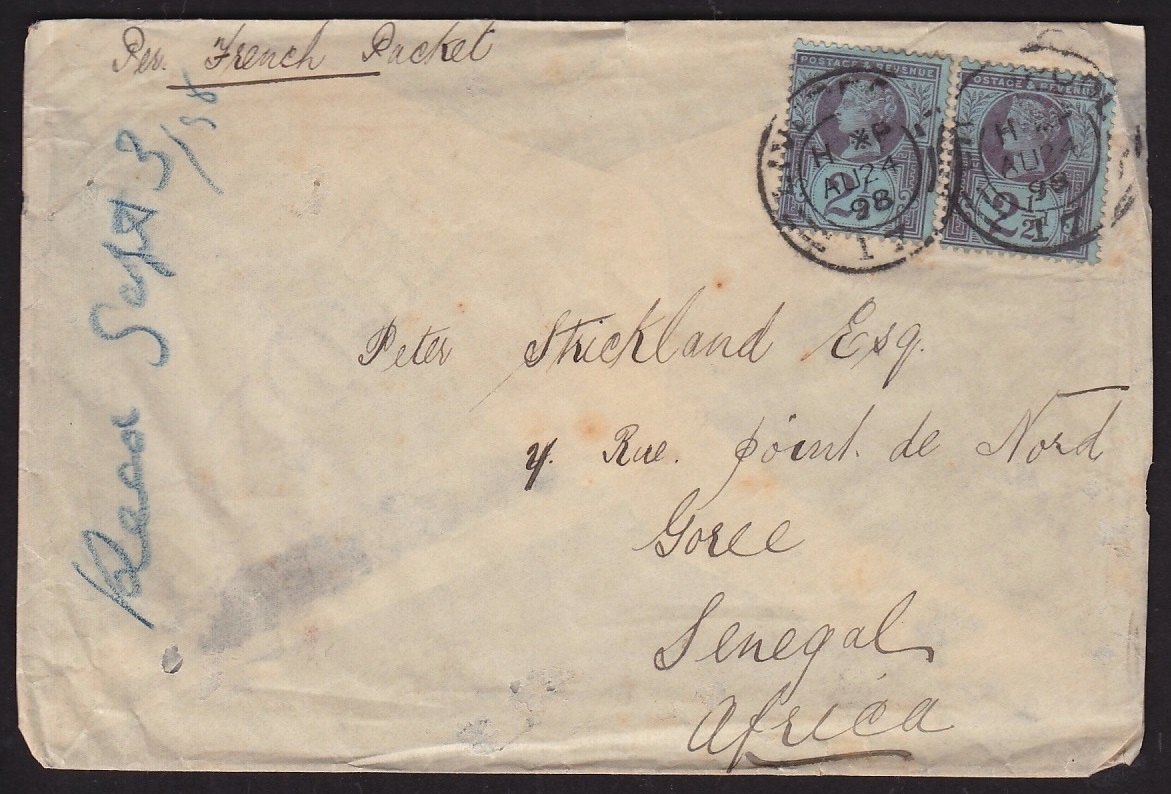 Per. French Packet
POSTAGE & REVENUE
POSTAGE & REVENUE
H P
AU 24
98
2½
17
H
AU 24
98
2½
17
Sept 3/98
Peter Strickland Esq.
4. Rue. point. de Nord
Goree
Senegal
Africa